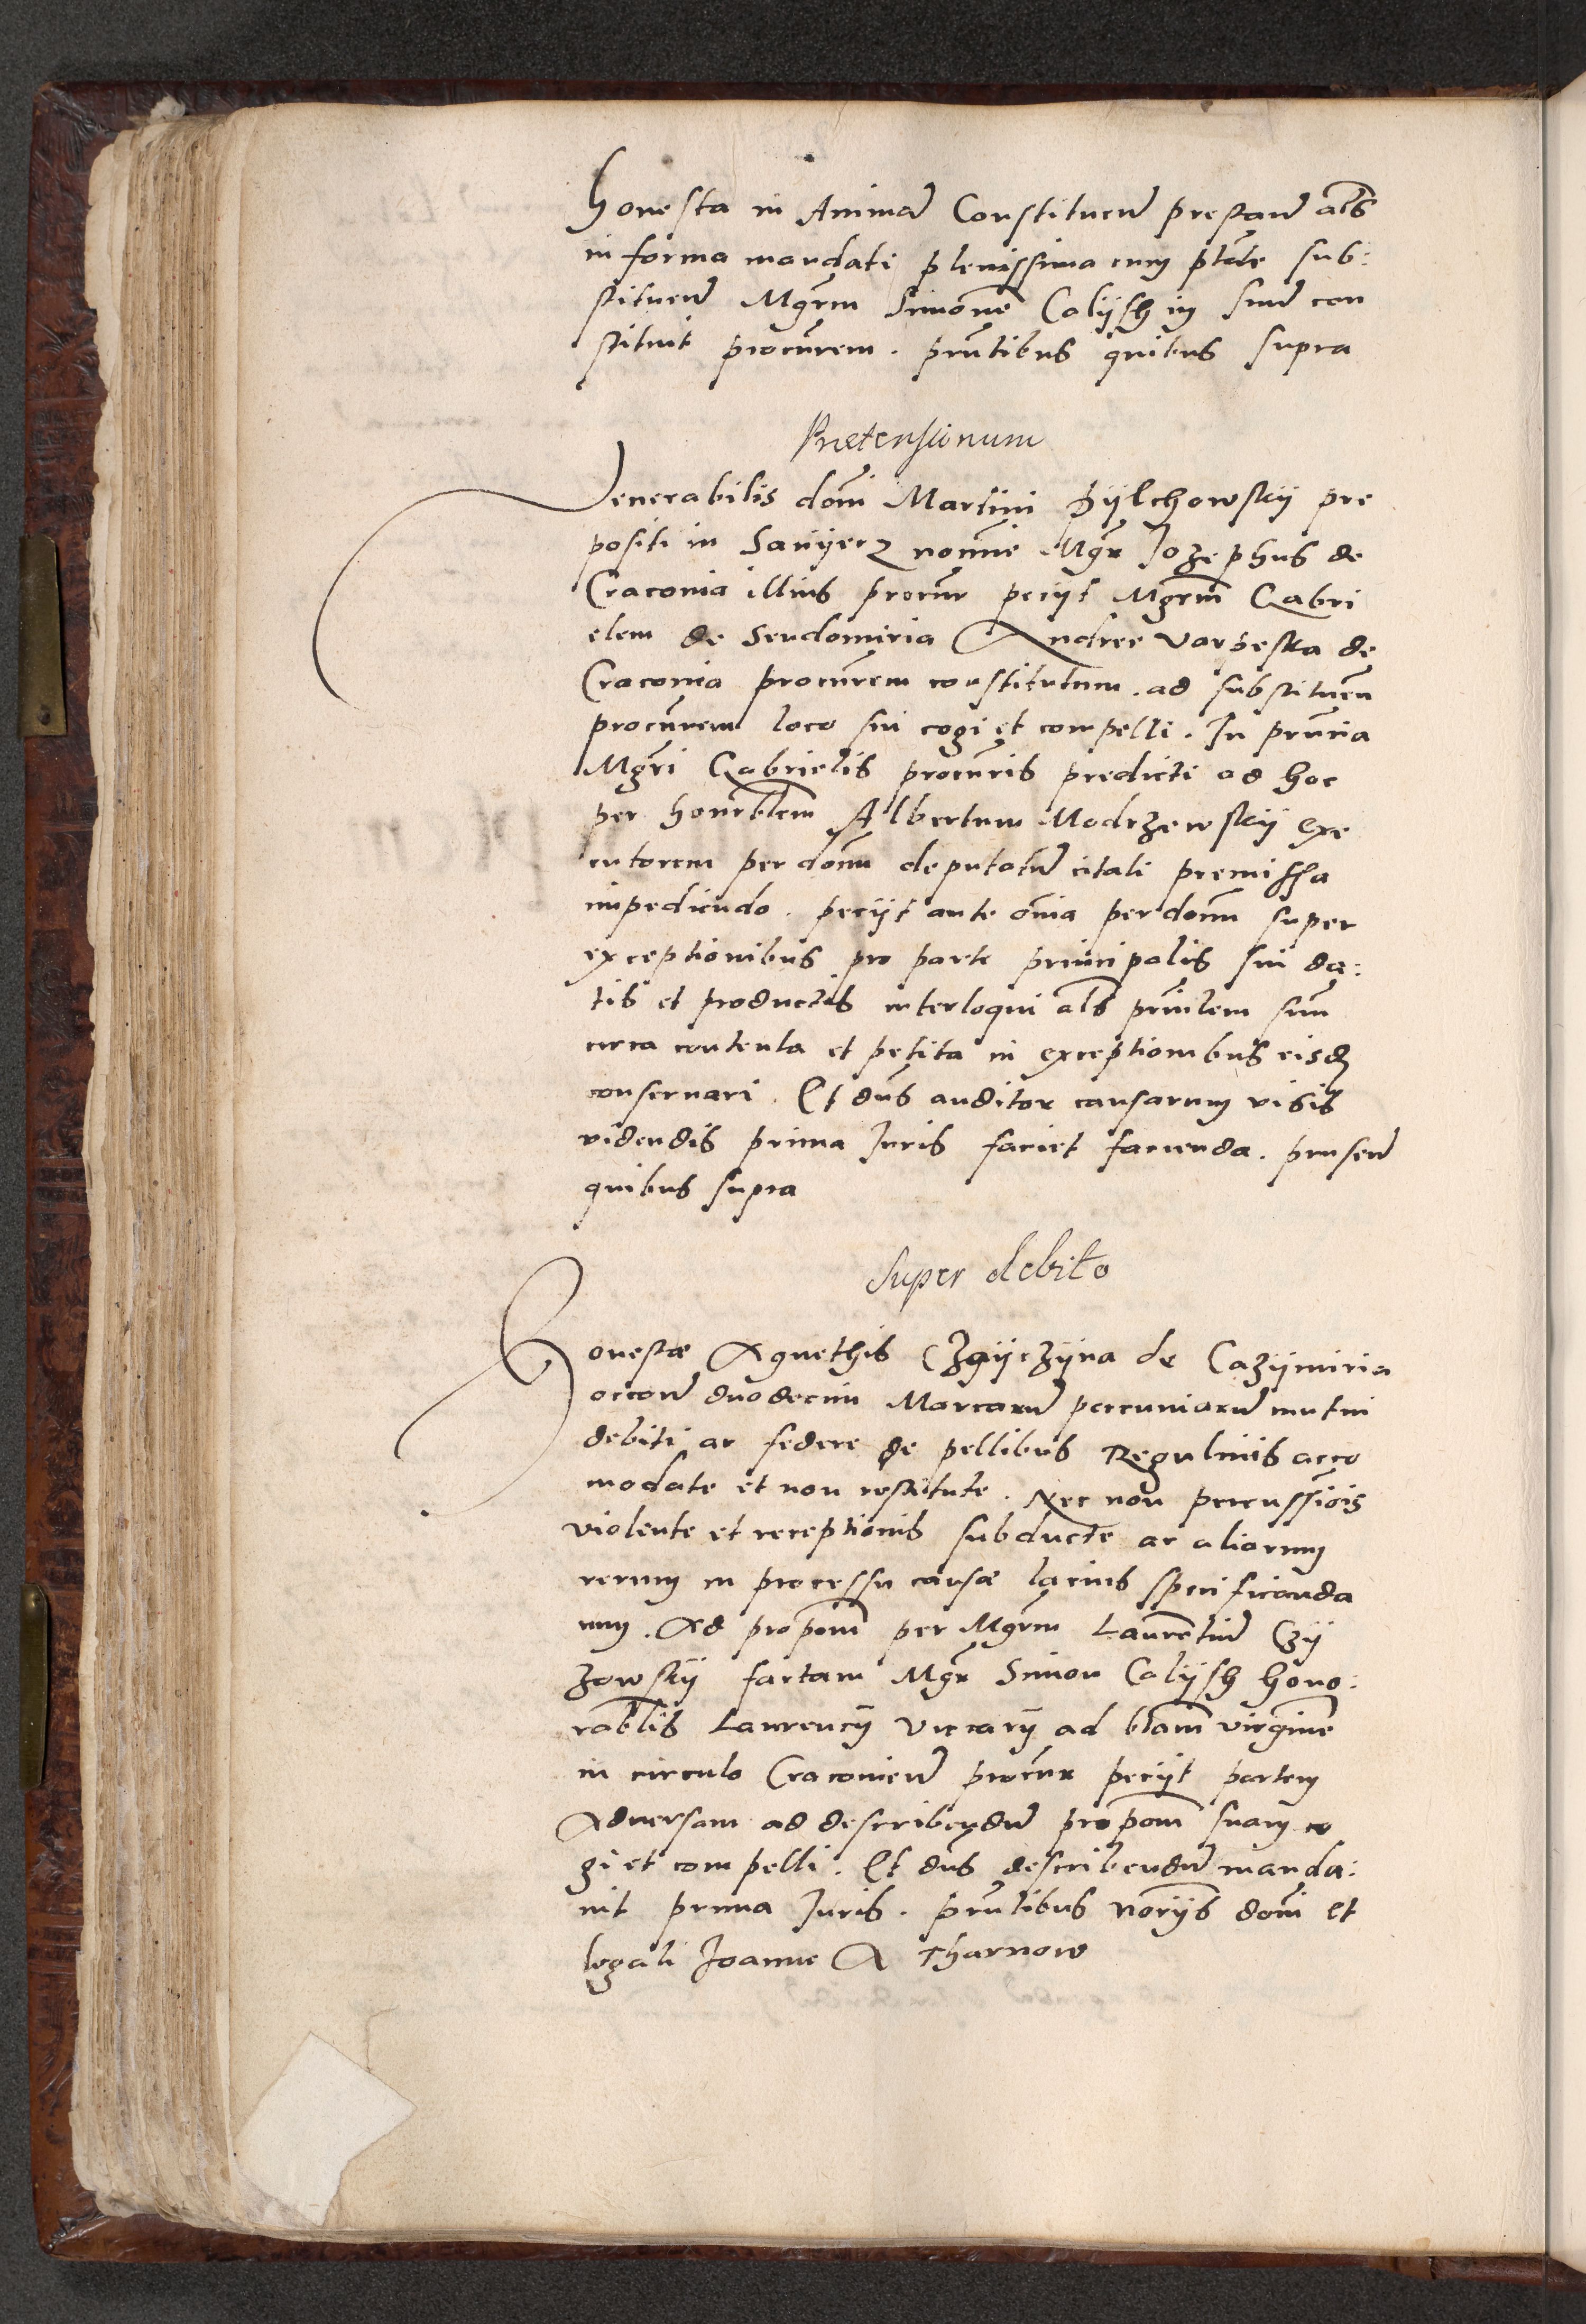 honesta in Animam Constituen prestand als
in forma mandati plenissima cum ptate sub:
stituend Mgrm Simone Calÿsh in suum con
stituit procurem. prntibus quibus supra
Pretensionum
Venerabilis domi Martini Pÿlchowskÿ pre
positi in nomine Mgr Jozephus de
Craconia illius procur pecÿt Mgrm Gabri
elem de Sendomiria Andree Varpeska de
Craconia procurem constitutum. ad substituen
procurem loco sui cogi et compelli. In prncia
Mgri Gabrielis procuris predicti ad hoc
per honorblem Albertum Modrzewskÿ exe
cutorem per domu deputatum citati premissa
impediendo. pecÿt ante omia per domu super
exceptionibus pro parte principalis sui da:
tis et productis interloqui als prncilem suu
circa contenta et petita in exceptionibus eisdem
conseruari. Et dns auditor causarum visis
videndis prima Juris faciet facienda. prnsen
quibus supra
Super debito
Honestæ Agnethis Czgÿczÿna de Cazÿmiria
occone duodecim Marcarum pecuniarum mutui
debiti ac federe de pellibus Regulinis acco
modate et non restitute. Nec non percussiois
violente et receptionis subducte ac aliarum
rerum in processu causæ lacius specificanda
rum. Ad propom per Mgrm Laurentium Czÿ
zowskÿ factam Mgr Simon Calÿsh hono:
rablis Laurencÿ Viccarÿ ad btam virgine
in circulo Craconien procur pecÿt partem
Aduersam ad describendum propom suam co
gi et compelli. Et dns describendum manda:
uit prima Juris. prntibus norÿs domi et
legali Joanne A Tharnow